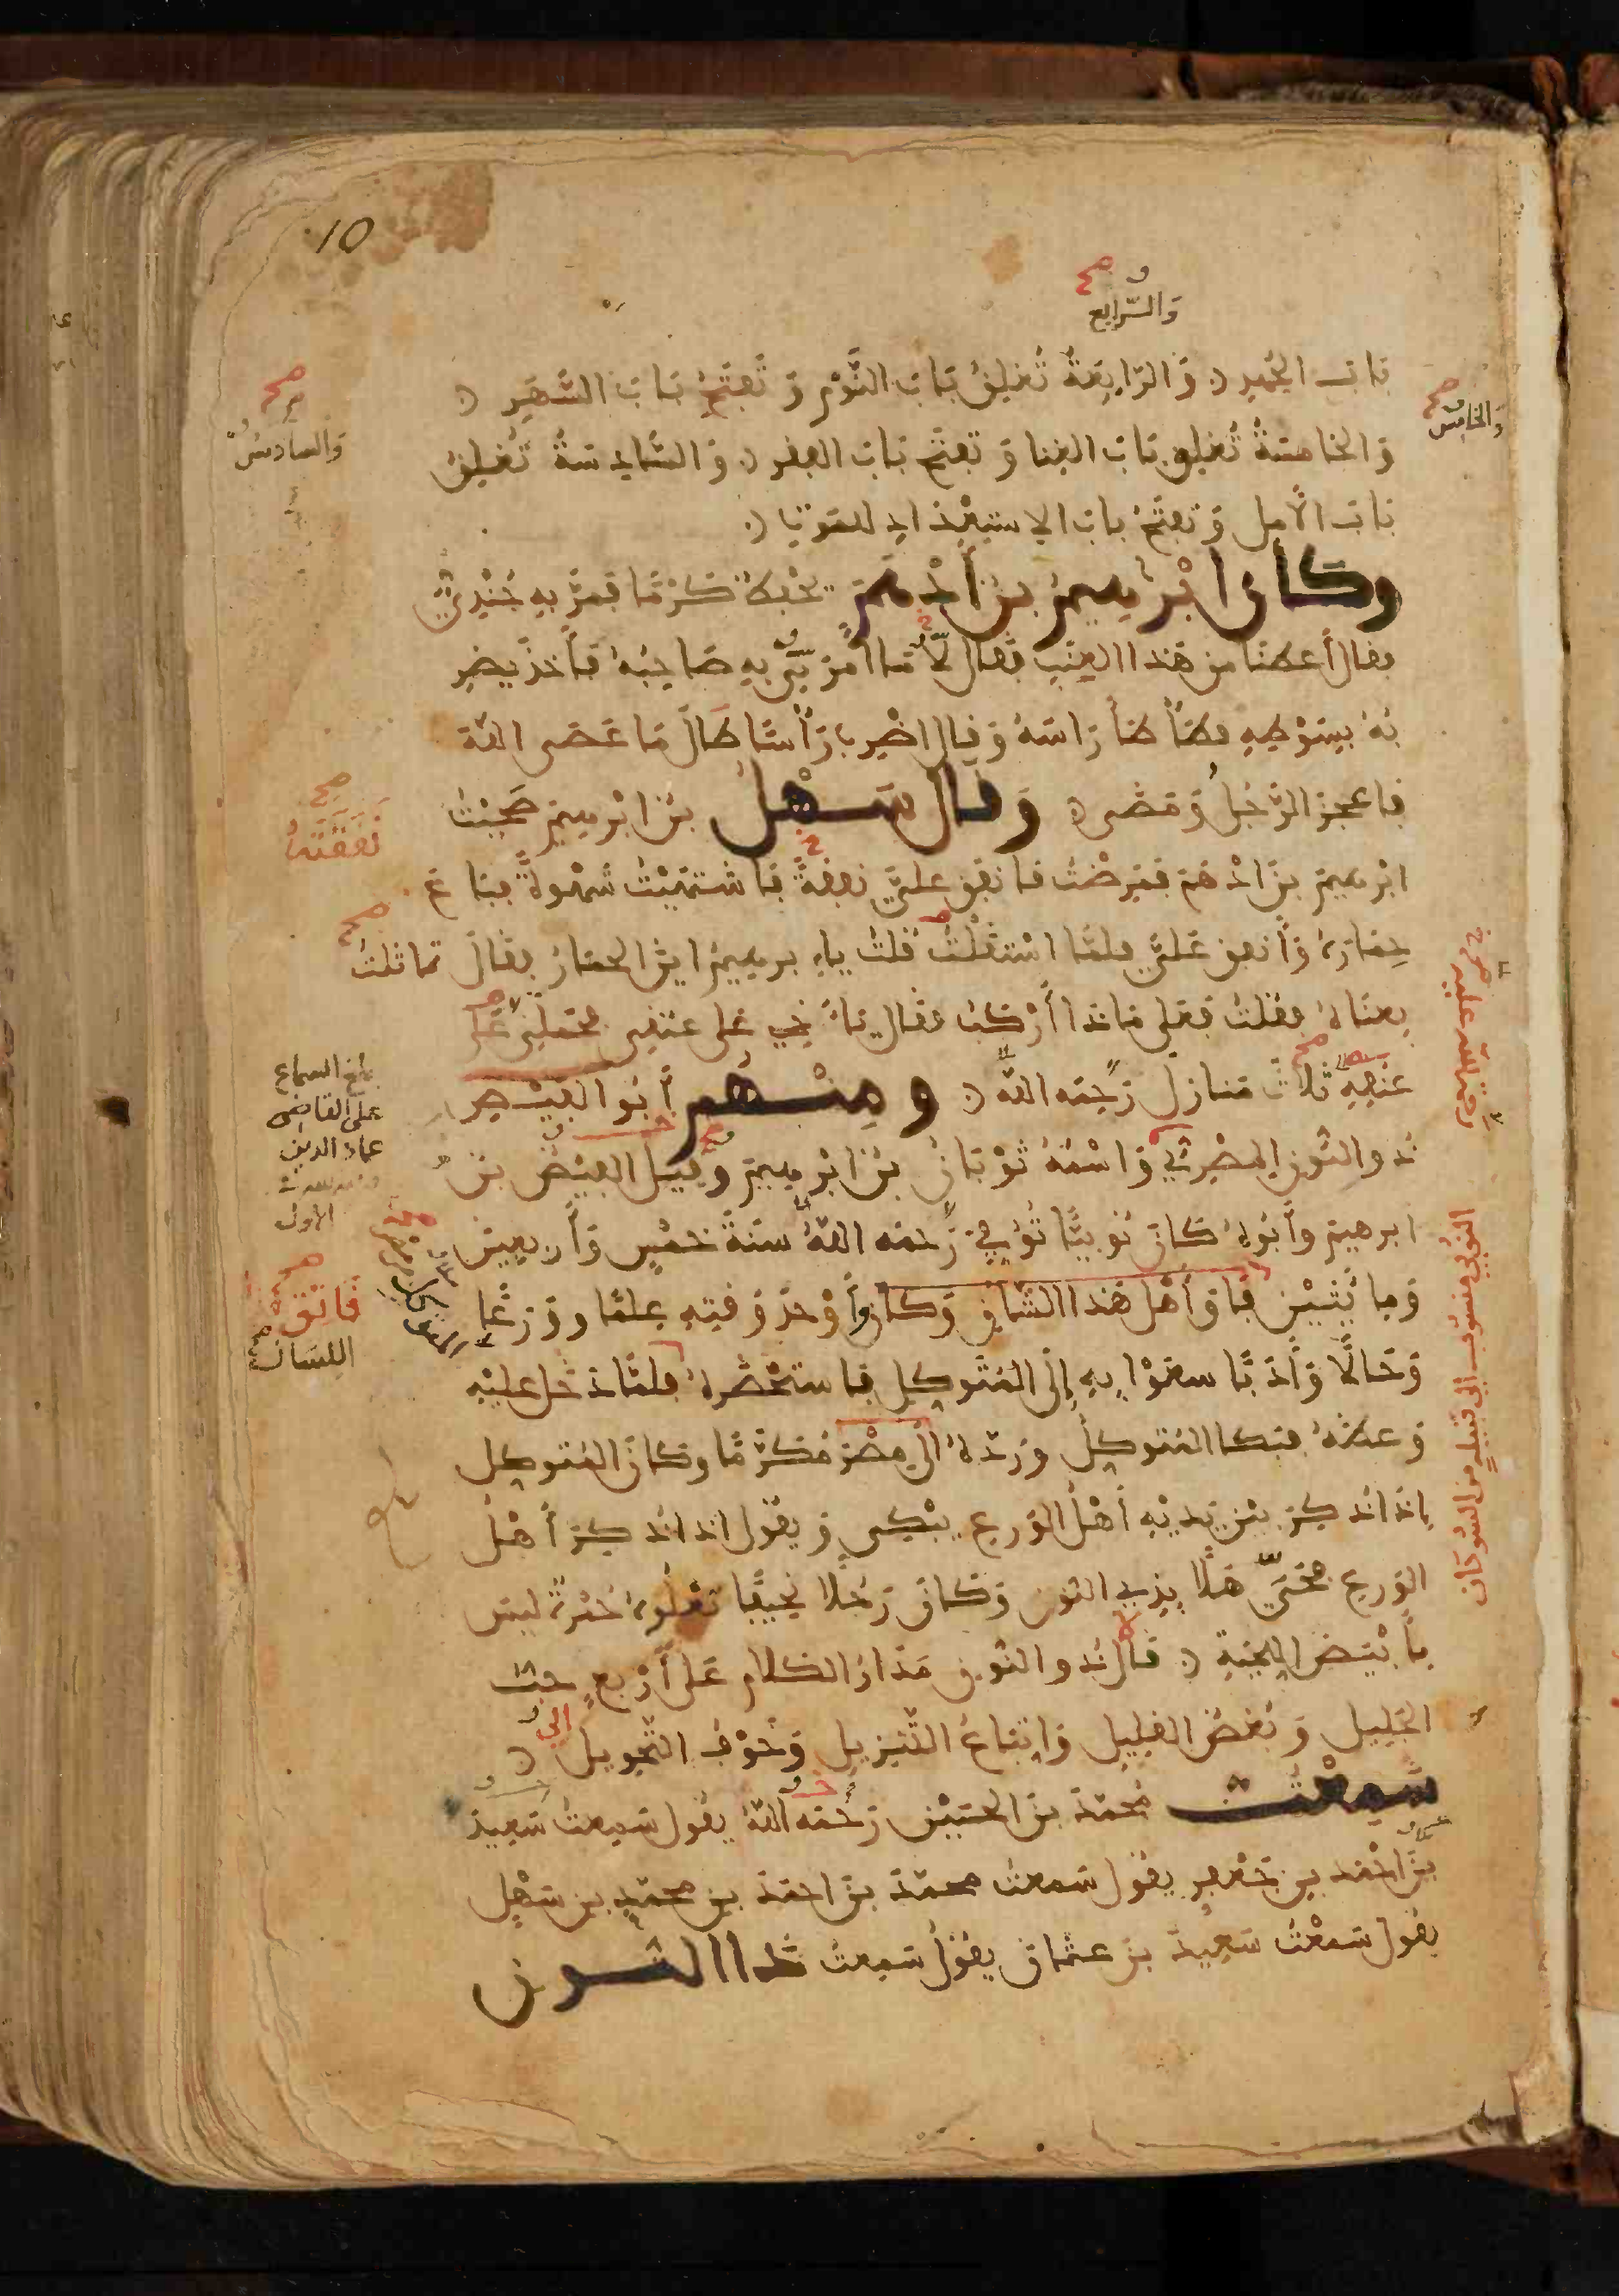 10
وَالرَّابِع
بَابَ الجُهدِ وَالرَّابِعَةُ تُغلِقُ بَابَ النَّوْمِ وَتَفتَحُ بَابَ السَّهَرِ
وَالخَامِسُ
وَالسادِسُ
وَالخَامسَةُ تُغلِقُ بَابَ الغِنا وَتَفتَح بَابَ الفقر وَالسَّادِسَةُ تُغلِقُ
بَابَ الأمل وَتَفتَحُ بابَ الاستِعْدَادِ للمَوتِ
وكَانَ ابْرهِيمُ بنُ أدْهَمَ يَحْفظُ كَرْمًا فَمَرَّ بِهِ جُنْدِيٌّ
فقال أعطنَا من هَذا العِنَبِ فَقَال لا مَا أمَرَنِي بِهِ صَاحِبُهُ فَأخذَ يَضرِ
بُهُ بِسَوْطِهِ فطَأطَأَ رَاسَهُ وَقال اضْرِب رَأْسًا طَالَ مَا عَصَى اللهَ
فاعجزَ الرَّجُلُ وَمَضى وَقالَ سَهْلُ بنُ ابْرهِيمَ صَحِبْتُ
نَفَقَتَهُ
ابْرهِيمَ بنَ ادْهَم فَمَرِضْتُ فانفق عليَّ نفقةً فَاشتَهَيْتُ شَهْوَةً فباعَ
حِمَارَهُ وَأنفق عَليَّ فلمَّا اسْتَقْلَلْتُ قُلتُ يا ابرهِيمُ اينَ الحمَارُ فقَالَ تماثلتُ
بِعنَاهُ فقُلتُ فَعَلى مَاذا أرْكَبُ فقَال يَا أخِي عَلى عنقي فحَمَلَنِي عَلى
عنُقِهِ ثَلاثَ مَنازِلَ رَحِمَه اللهُ وَمِنْهُم أبُو الفَيْضِ
بلغ السماع
على القاضي
عماد الدين
الاول
ذُو النُّونِ المِصْرِيُّ وَاسْمُهُ ثَوْبَانُ بنُ ابْرهِيمَ وقيل الفَيْضُ بنُ
ابرهيم وأبُوهُ كَانَ نُوبيًّا تُوُفِّيَ رَحمَه اللهُ سَنَةَ خمْسٍ وَأربعِينَ
وَمِايَتَيْنِ فَاقَ أهْل هَذا الشَّانِ وَكَانَ أوْحَدَ وَقتِهِ عِلمًا وَوَرَعًا
فَائِقَ
اللسَان
وَحَالًا وَأدَبًا سعَوْا بِهِ إلَى المُتَوكِلِ فاستَحْضَرَهُ فلمَّا دَخلَ عليْهِ
وَعظَهُ فبكا المُتوكِلُ وَرَدّهُ الَى مِصْرَ مُكَرَّمًا وكانَ المُتوكِلُ
إذَا ذُكِرَ بَيْنَ يَدَيْهِ أهْلُ الوَرَع يَبْكي وَيَقُولُ اذا ذُكِرَ أهْلُ
الوَرع فحَيَّ هَلًا بِذِي النُّون وَكَانَ رَجُلًا نَحِيفًا تَعْلُوهُ حُمْرَةٌ ليسَ
بأَبْيَضِ اللِّحْيَةِ قال ذُو النُّون مَدَارُ الكَلام عَلى أرْبَعٍ حُبُّ
الجَلِيل وَبُغضُ القَليل وَاتّبَاعُ التَّنزِيل وَخَوْفُ التَّحْوِيل
سَمِعْتُ مُحمّدَ بنَ الحُسَيْن رَحمَه اللهُ يقُول سَمِعتُ سَعِيدَ
بنَ احْمَد بنِ جَعْفر يقُول سَمعتُ محمّدَ بنَ احمَدَ بنِ محمّدِ بنِ سَهْلٍ
يقُول سَمعْتُ سَعِيدَ بنَ عثمَانَ يقُولُ سَمعتُ ذَا النُّون
النُّوبي منسُوب الى قبيلةٍ من السُّودَان